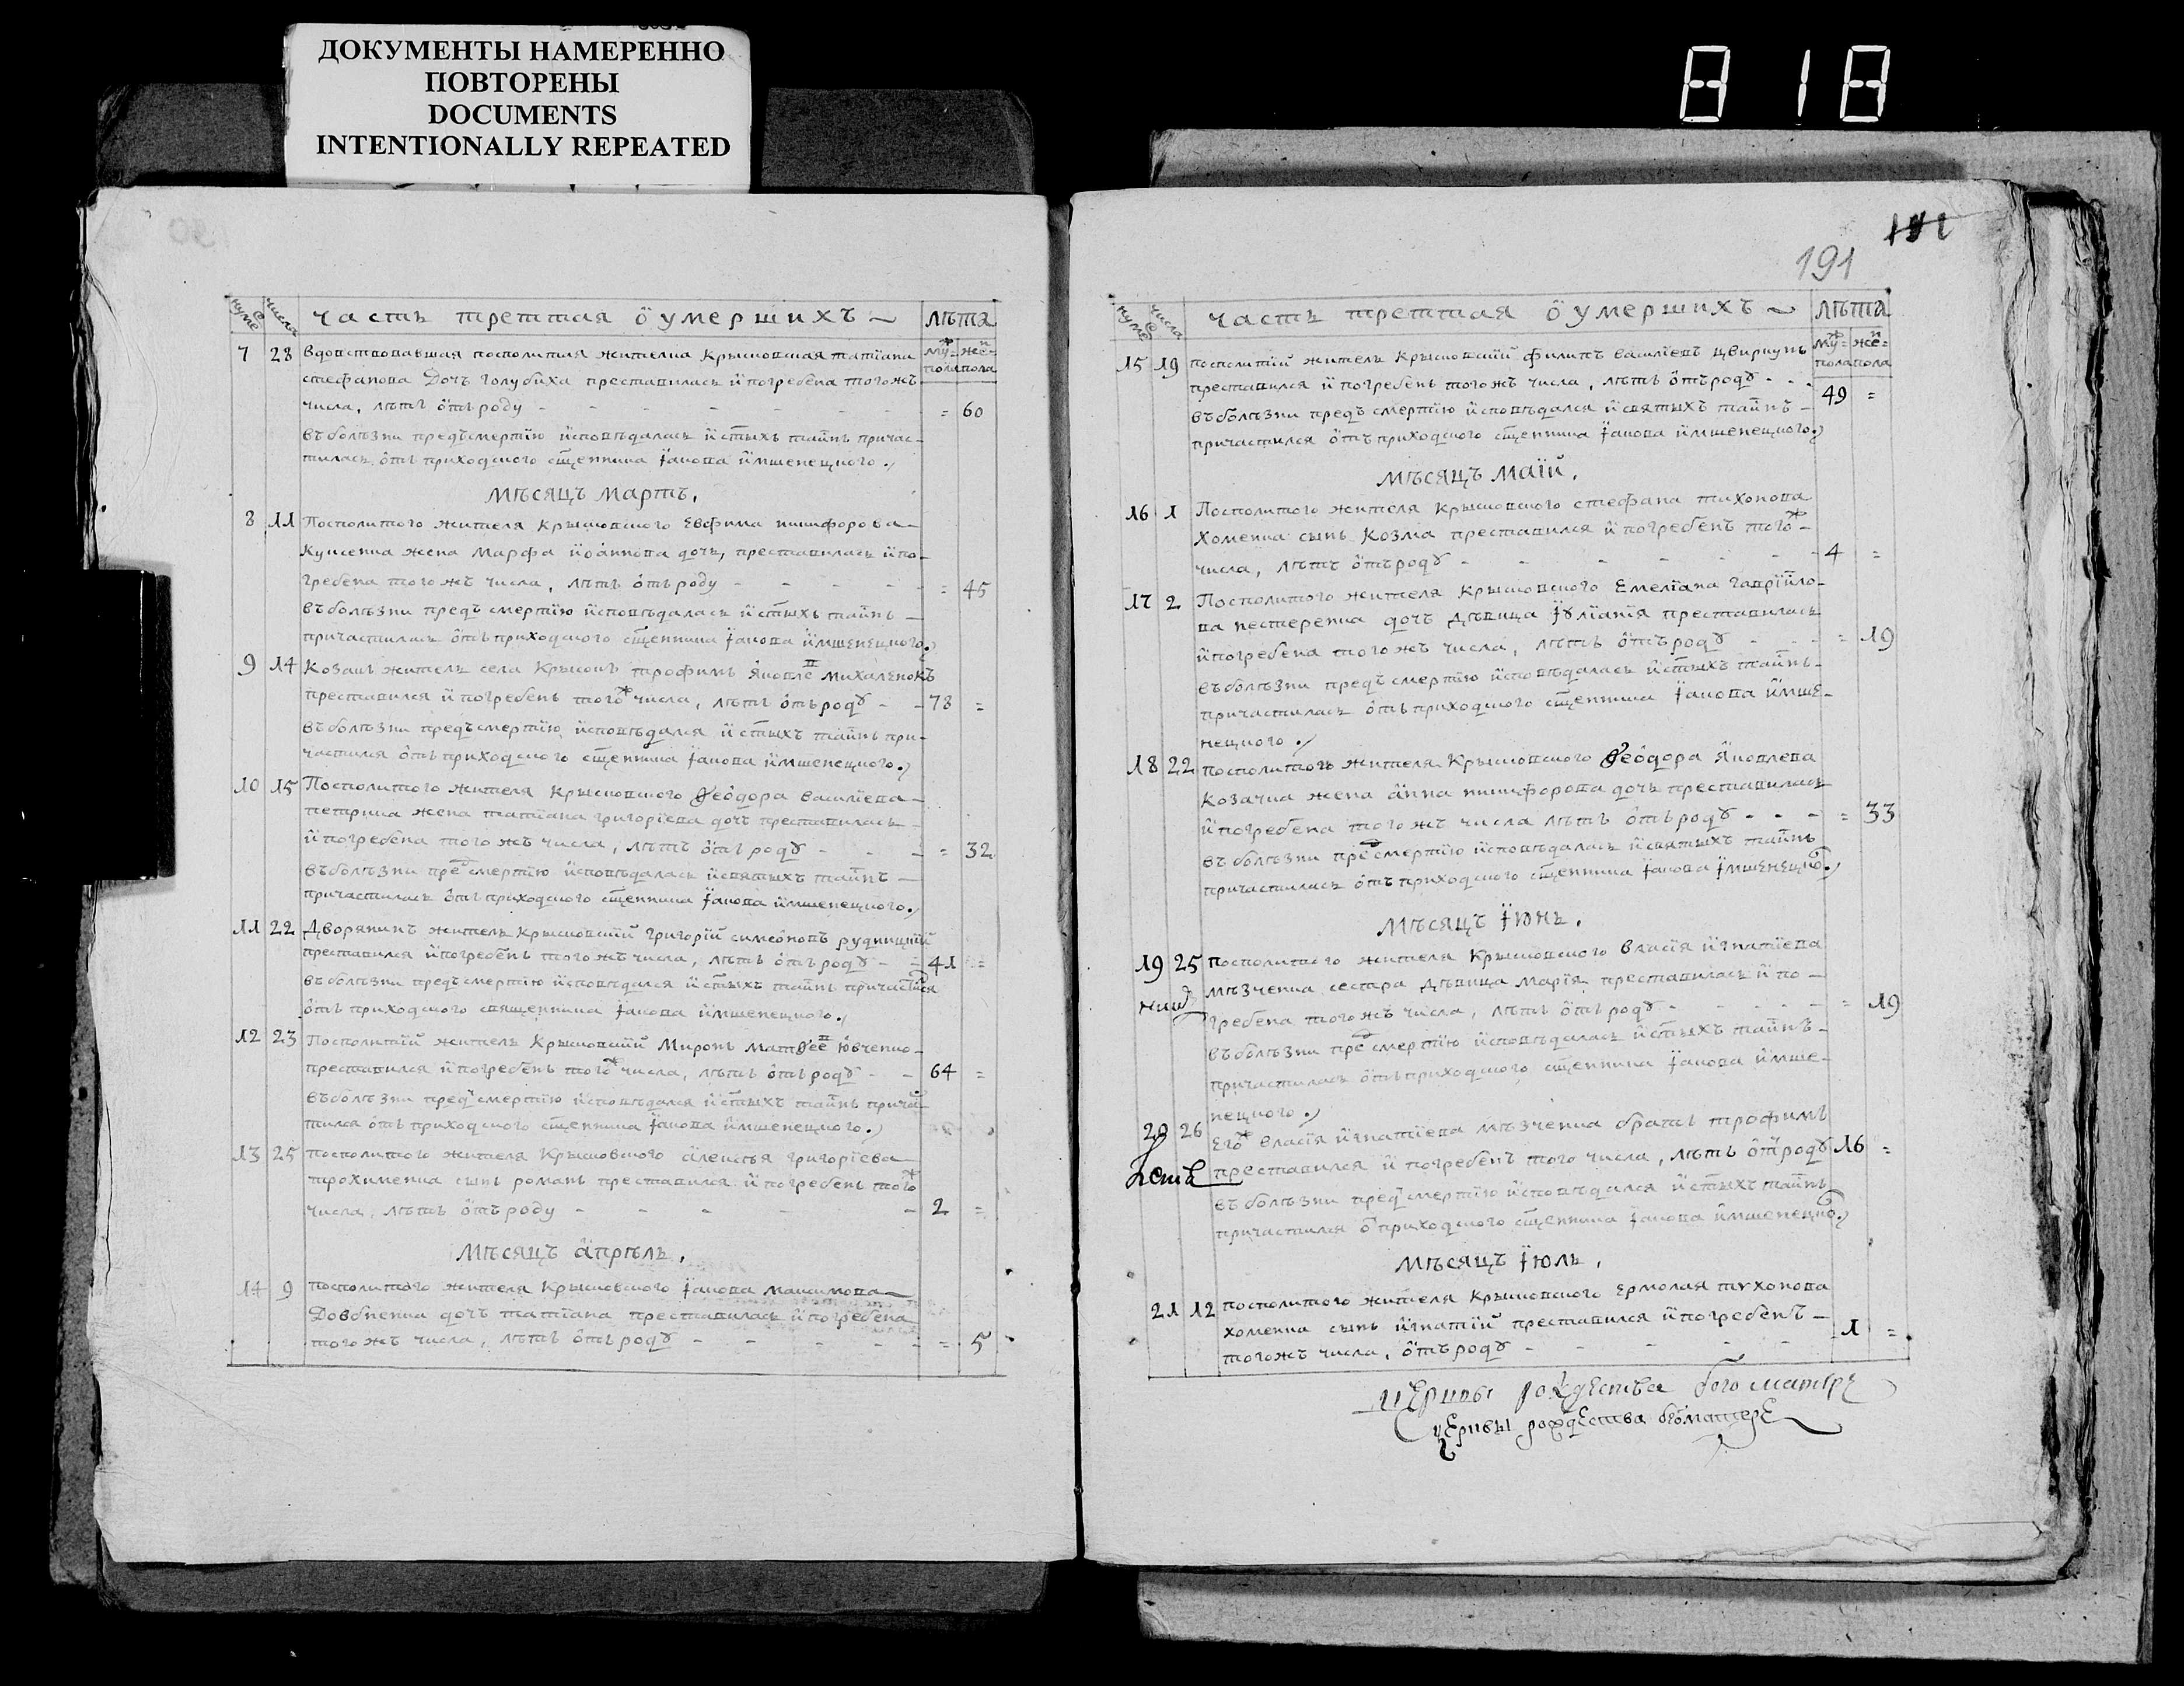 ДОКУМЕНТЫ НАМЕРЕННО
ПОВТОРЕНЫ
DOCUMENTS
INTENTIONALLY REPEATED
818
нумеръ числа часть треттая о умершихъ лѣта
муж: пола жен: пола
7 28 Вдовствовавшая посполитая жителка Крысковская татіана
стефанова Дочъ голубиха преставилась и погребена тогожъ
числа, лѣтъ отъ роду - - = 60
въ болѣзни предъ смертію исповѣдалась и стыхъ таинъ причас-
тилась отъ приходского сщенника Іакова имшенецкого.
мѣсяцъ мартъ.
8 11 Посполитого жителя крысковского Евфима никифорова
Куксенка жена марфа иоаннова дочь, преставилась и по-
гребена того жъ числа, лѣтъ отъ роду - - = 45
въ болѣзни предъ смертію исповѣдалась и стыхъ таинъ
причастилась отъ приходского сщенника Іакова имшенецкого.
9 14 Козакъ житель села крысокъ трофимъ яковле михаленокъ
преставился и погребенъ того ж числа, лѣтъ отъ роду - - 78 =
въ болѣзни предъ смертію исповѣдался и стыхъ таинъ при-
частился отъ приходского сщенника Іакова имшенецкого.
10 15 Посполитого жителя крысковского Ѳеодора василіева
петрика жена татіана григоріева дочъ преставилась
и погребена того жъ числа, лѣтъ отъ роду - - = 32
въ болѣзни пред смертію исповѣдалась и святыхъ таинъ
причастилась отъ приходского сщенника Іакова имшенецкого.
11 22 Дворянинъ житель крысковскій григорій симеоновъ рудницкій
преставился и погребенъ того жъ числа, лѣтъ отъ роду - - 41 =
въ болѣзни предъ смертію исповѣдался и стыхъ таинъ причастился
отъ приходского священника Іакова имшенецкого.
12 23 Посполитій житель крысковскій Миронъ матѳѣе ювченко
преставился и погребенъ того ж числа, лѣтъ отъ роду - - 64 =
въ болѣзни предъ смертію исповѣдался и стыхъ таинъ причас
тился отъ приходского сщенника Іакова имшенецкого.
13 25 посполитого жителя крысковского алексѣя григоріева
трохименка сынъ романъ преставился и погребенъ того ж
числа, лѣтъ отъ роду - - 2 =
мѣсяцъ апрѣль.
14 9 посполитого жителя крысковского Іакова максимова
Довбненка дочъ татіана преставилась и погребена
того жъ числа, лѣтъ отъ роду - - = 5
191
нумеръ числа часть треттая о умершихъ лѣта
муж: пола жен: пола
15 19 посполитій житель крысковскій филипъ василіевъ цвиркунъ
преставился и погребенъ того жъ числа, лѣтъ отъ роду - - 49 =
въ болѣзни предъ смертію исповѣдался и святыхъ таинъ
причастился отъ приходского сщенника Іакова имшенецкого.
мѣсяцъ маій.
16 1 Посполитого жителя крысковского стефана тихонова
хоменка сынъ козма преставился и погребенъ того ж
числа, лѣтъ отъ роду - - 4 =
17 2 Посполитого жителя крысковского Емеліана гавріило-
ва нестеренка дочъ дѣвица Іуліанія преставилась
и погребена того жъ числа, лѣтъ отъ роду - - = 19
въ болѣзни предъ смертію исповѣдалась и стыхъ таинъ
причастилась отъ приходского сщенника Іакова имше-
нецкого.
18 22 посполитого жителя крысковского Ѳеодора яковлева
козачка жена анна никифорова дочь преставилась
и погребена того жъ числа лѣтъ отъ роду - - = 33
въ болѣзни пред смертію исповѣдалась и святыхъ таинъ
причастилась отъ приходского сщенника Іакова Імшенецко.
мѣсяцъ Іюнь.
19 25 посполитого жителя крысковского власія игнатіева
мѣзченка сестра дѣвица марія преставилась и по-
гребена того жъ числа, лѣтъ отъ роду - - = 19
въ болѣзни пред смертію исповѣдалась и стыхъ таинъ
причастилась отъ приходского сщенника Іакова имше-
нецкого.
20 26 Его ж власія игнатіева мѣзченка братъ трофимъ
преставился и погребенъ того числа, лѣтъ от роду 16 =
въ болѣзни предъ смертію исповѣдался и стыхъ таинъ
причастился о приходского сщенника Іакова имшенецко.
мѣсяцъ Іюль.
21 12 посполитого жителя крысковского ермолая тихонова
хоменка сынъ игнатій преставился и погребенъ
тогожъ числа, отъ роду - - 1 =
церквы рождества бого матере
церквы рождества богоматере